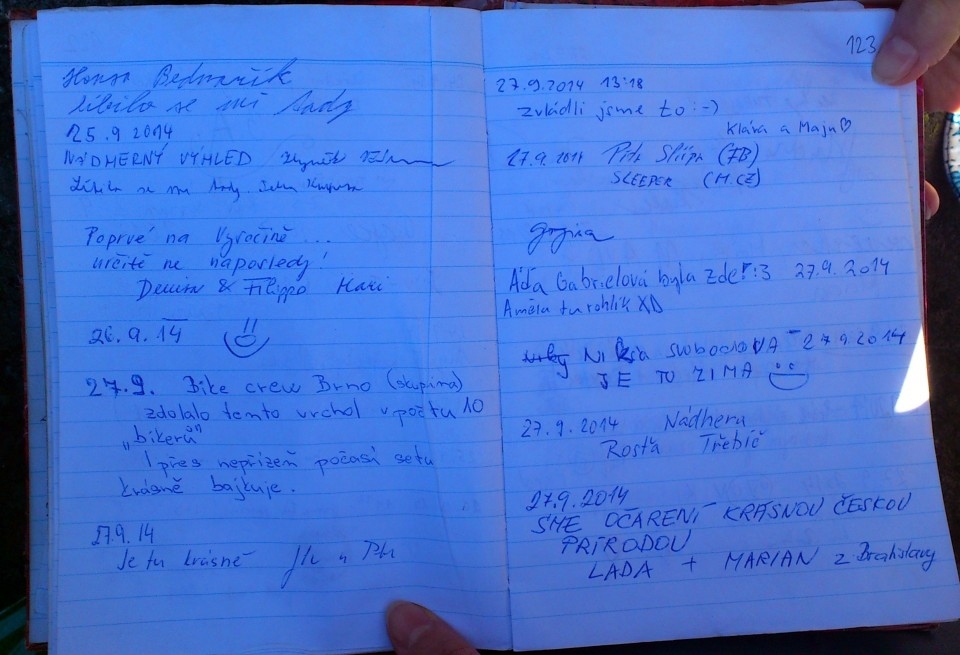 Honza Bednařík
líbilo se mi tady
25.9 2014
NÁDHERNÝ VÝHLED
Líbilo se mi tady.
Poprvé na Vysočině ...
určitě ne naposledy!
Denisa & Filippo
26.9.14
27.9. Bike crew Brno (skupina)
zdolalo tento vrchol v počtu 10
„bikerů"
I přes nepřízeň počasí se tu
krásně bajkuje.
27.9.14
Je tu krásně
123
27.9.2014 13:18
zvládli jsme to :-)
Klára a Maju♡
27.9.2014 (FB)
SLEEPER (H.CZ)
Áďa Gabrielová byla zde :3 27.9.2014
Améla tu rohlík XD
SVOBODOVA 27.9.2014
JE TU ZIMA
27.9.2014 Nádhera
Rosťa Třebíč
27.9.2014
SME OČARENÍ KRÁSNOU ČESKOU
PRÍRODOU
LADA + MARIAN z Bratislavy